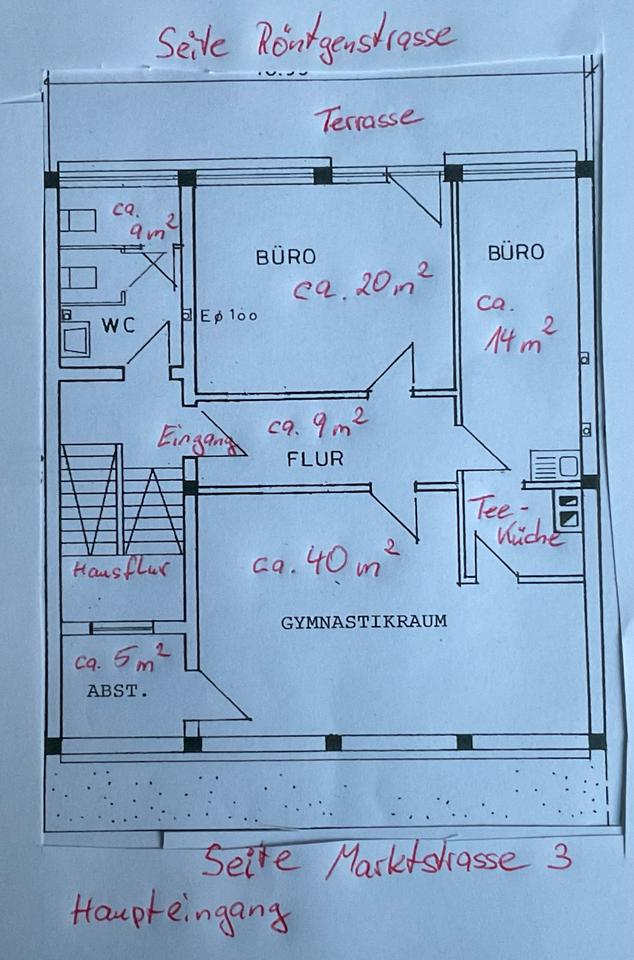 Seite Röntgenstrasse
Terrasse
ca.
9 m²
BÜRO
ca. 20 m²
BÜRO
ca.
14 m²
WC
E⌀ 100
Eingang
ca. 9 m²
FLUR
Tee-
Küche
Hausflur
ca. 40 m²
GYMNASTIKRAUM
ca. 5 m²
ABST.
Seite Marktstrasse 3
Haupteingang